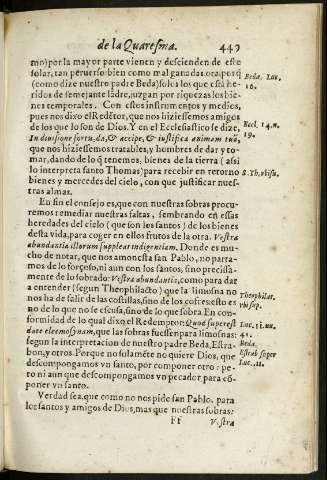 de la Quaresma. 449
mo) por la mayor parte vienen y descienden de este
solar, tan peruerso bien como mal ganado: ora, porq̃
(como dize nuestro padre Beda) solos los que està he-
ridos de semejante lādre, juzgan por riquezas los bie-
nes temporales. Con estos instrumentos y medios,
pues nos dixo el Redētor, que nos hiziessemos amigos
de los que lo son de Dios. Y en el Ecclesiastico se dize,
In diuisione
& accipe, & iustifica animam tuā,
que nos hiziessemos tratables, y hombres de dar y to-
mar, dando de lo q̃ tenemos, bienes de la tierra (assi
lo interpreta santo Thomas) para recebir en retorno
bienes y mercedes del cielo, con que justificar nues-
tras almas.
En fin el consejo es, que con nuestras sobras procu-
remos remediar nuestras faltas, sembrando en essas
heredades del cielo (que son los santos) de los bienes
desta vida, para coger en ellos frutos de la otra. Vestra
abundantia illorum suppleat indigentiam. Donde es mu-
cho de notar, que nos amonesta san Pablo, no parta-
mos de lo forçoso, ni aun con los santos, sino precissa-
mente de lo sobrado: Vestra abundantia, como para dar
a entender (segun Theophilacto) que la limosna no
nos ha de salir de las costillas, sino de los cofres: esto es
no de lo que no se escusa, sino de lo que sobra. En con-
formidad de lo qual dixo el Redemptor: Quod superest
date eleemosynam, que las sobras fuessen para limosnas:
segun la interpretacion de nuestro padre Beda, Estra-
bon, y otros. Porque no solamēte no quiere Dios, que
descompongamos vn santo, por componer otro: pe-
ro ni aun que descompongamos vn pecador para cō-
poner vn santo.
Verdad sea, que como no nos pide san Pablo, para
los santos y amigos de Dios, mas que nuestras sobras:
Ff Vestra
Beda. Luc.
16.
Eccl. 14. n.
19.
S. Th. vbisu.
Theophilat.
vbisup.
Luc. 11. nu.
41.
Beda.
Estrab super
Luc. 11.